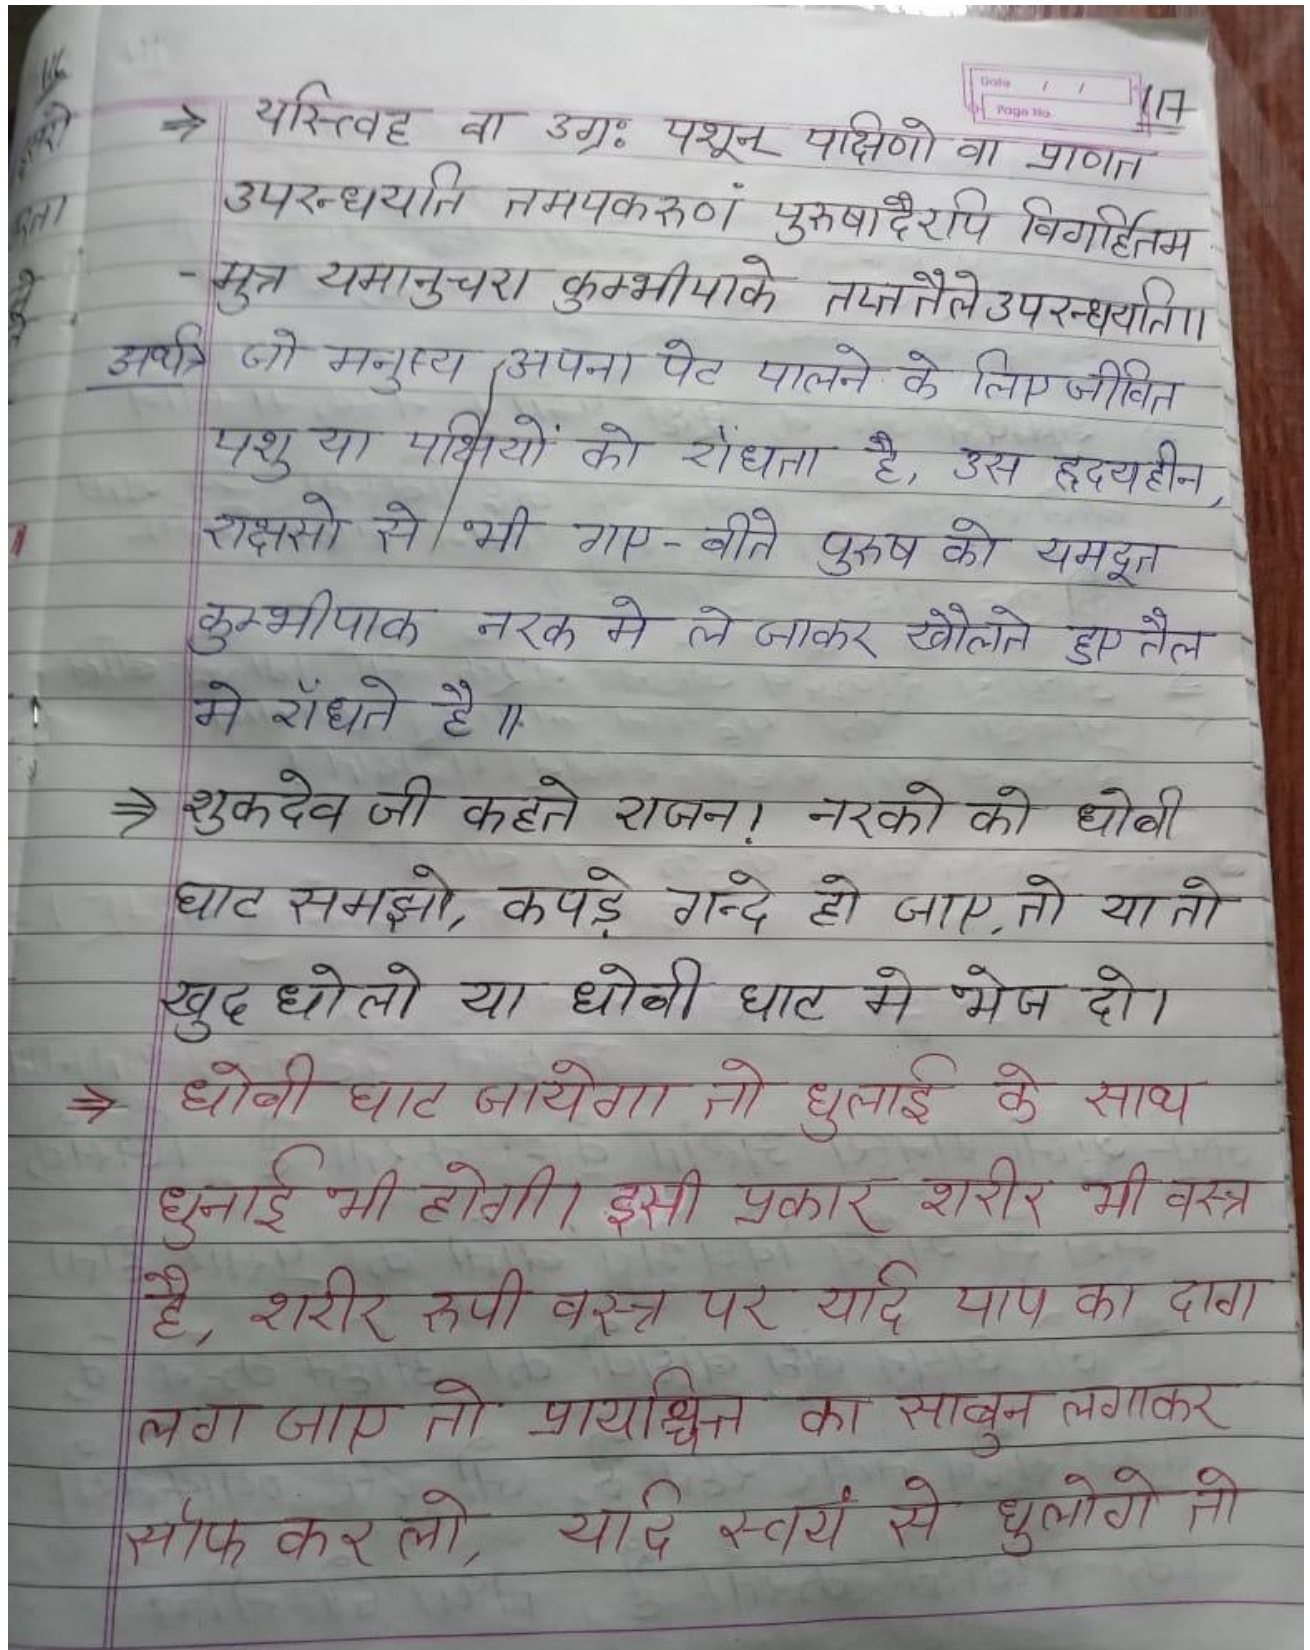 Date / /
Page No. 117
⇒ यस्त्विह वा उग्रः पशून् पक्षिणो वा प्राणत
उपरन्धयति तमपकरुणं पुरुषादैरपि विगर्हितम
- मुत्र यमानुचरा कुम्भीपाके तप्ततैले उपरन्धयति॥
अर्थात् जो मनुष्य अपना पेट पालने के लिए जीवित
पशु या पक्षियों को राँधता है, उस हृदयहीन,
राक्षसो से भी गए-बीते पुरुष को यमदूत
कुम्भीपाक नरक मे ले जाकर खौलते हुए तैल
मे राँधते है॥
⇒ शुकदेव जी कहते राजन! नरको को धोबी
घाट समझो, कपड़े गन्दे हो जाए, तो या तो
खुद धो लो या धोबी घाट मे भेज दो।
⇒ धोबी घाट जायेगा तो धुलाई के साथ
धुनाई भी होगी। इसी प्रकार शरीर भी वस्त्र
है, शरीर रुपी वस्त्र पर यदि पाप का दाग
लग जाए तो प्रायश्चित्त का साबुन लगाकर
साॅफ कर लो, यदि स्वयं से धुलोगे तो